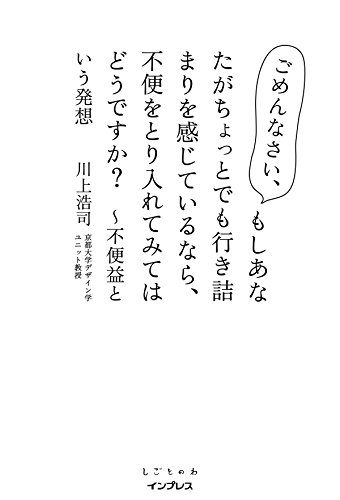 ごめんなさい、もしあな
たがちょっとでも行き詰
まりを感じているなら、
不便をとり入れてみては
どうですか？ 〜不便益と
いう発想 川上浩司
京都大学デザイン学
ユニット教授
しごとのわ
インプレス